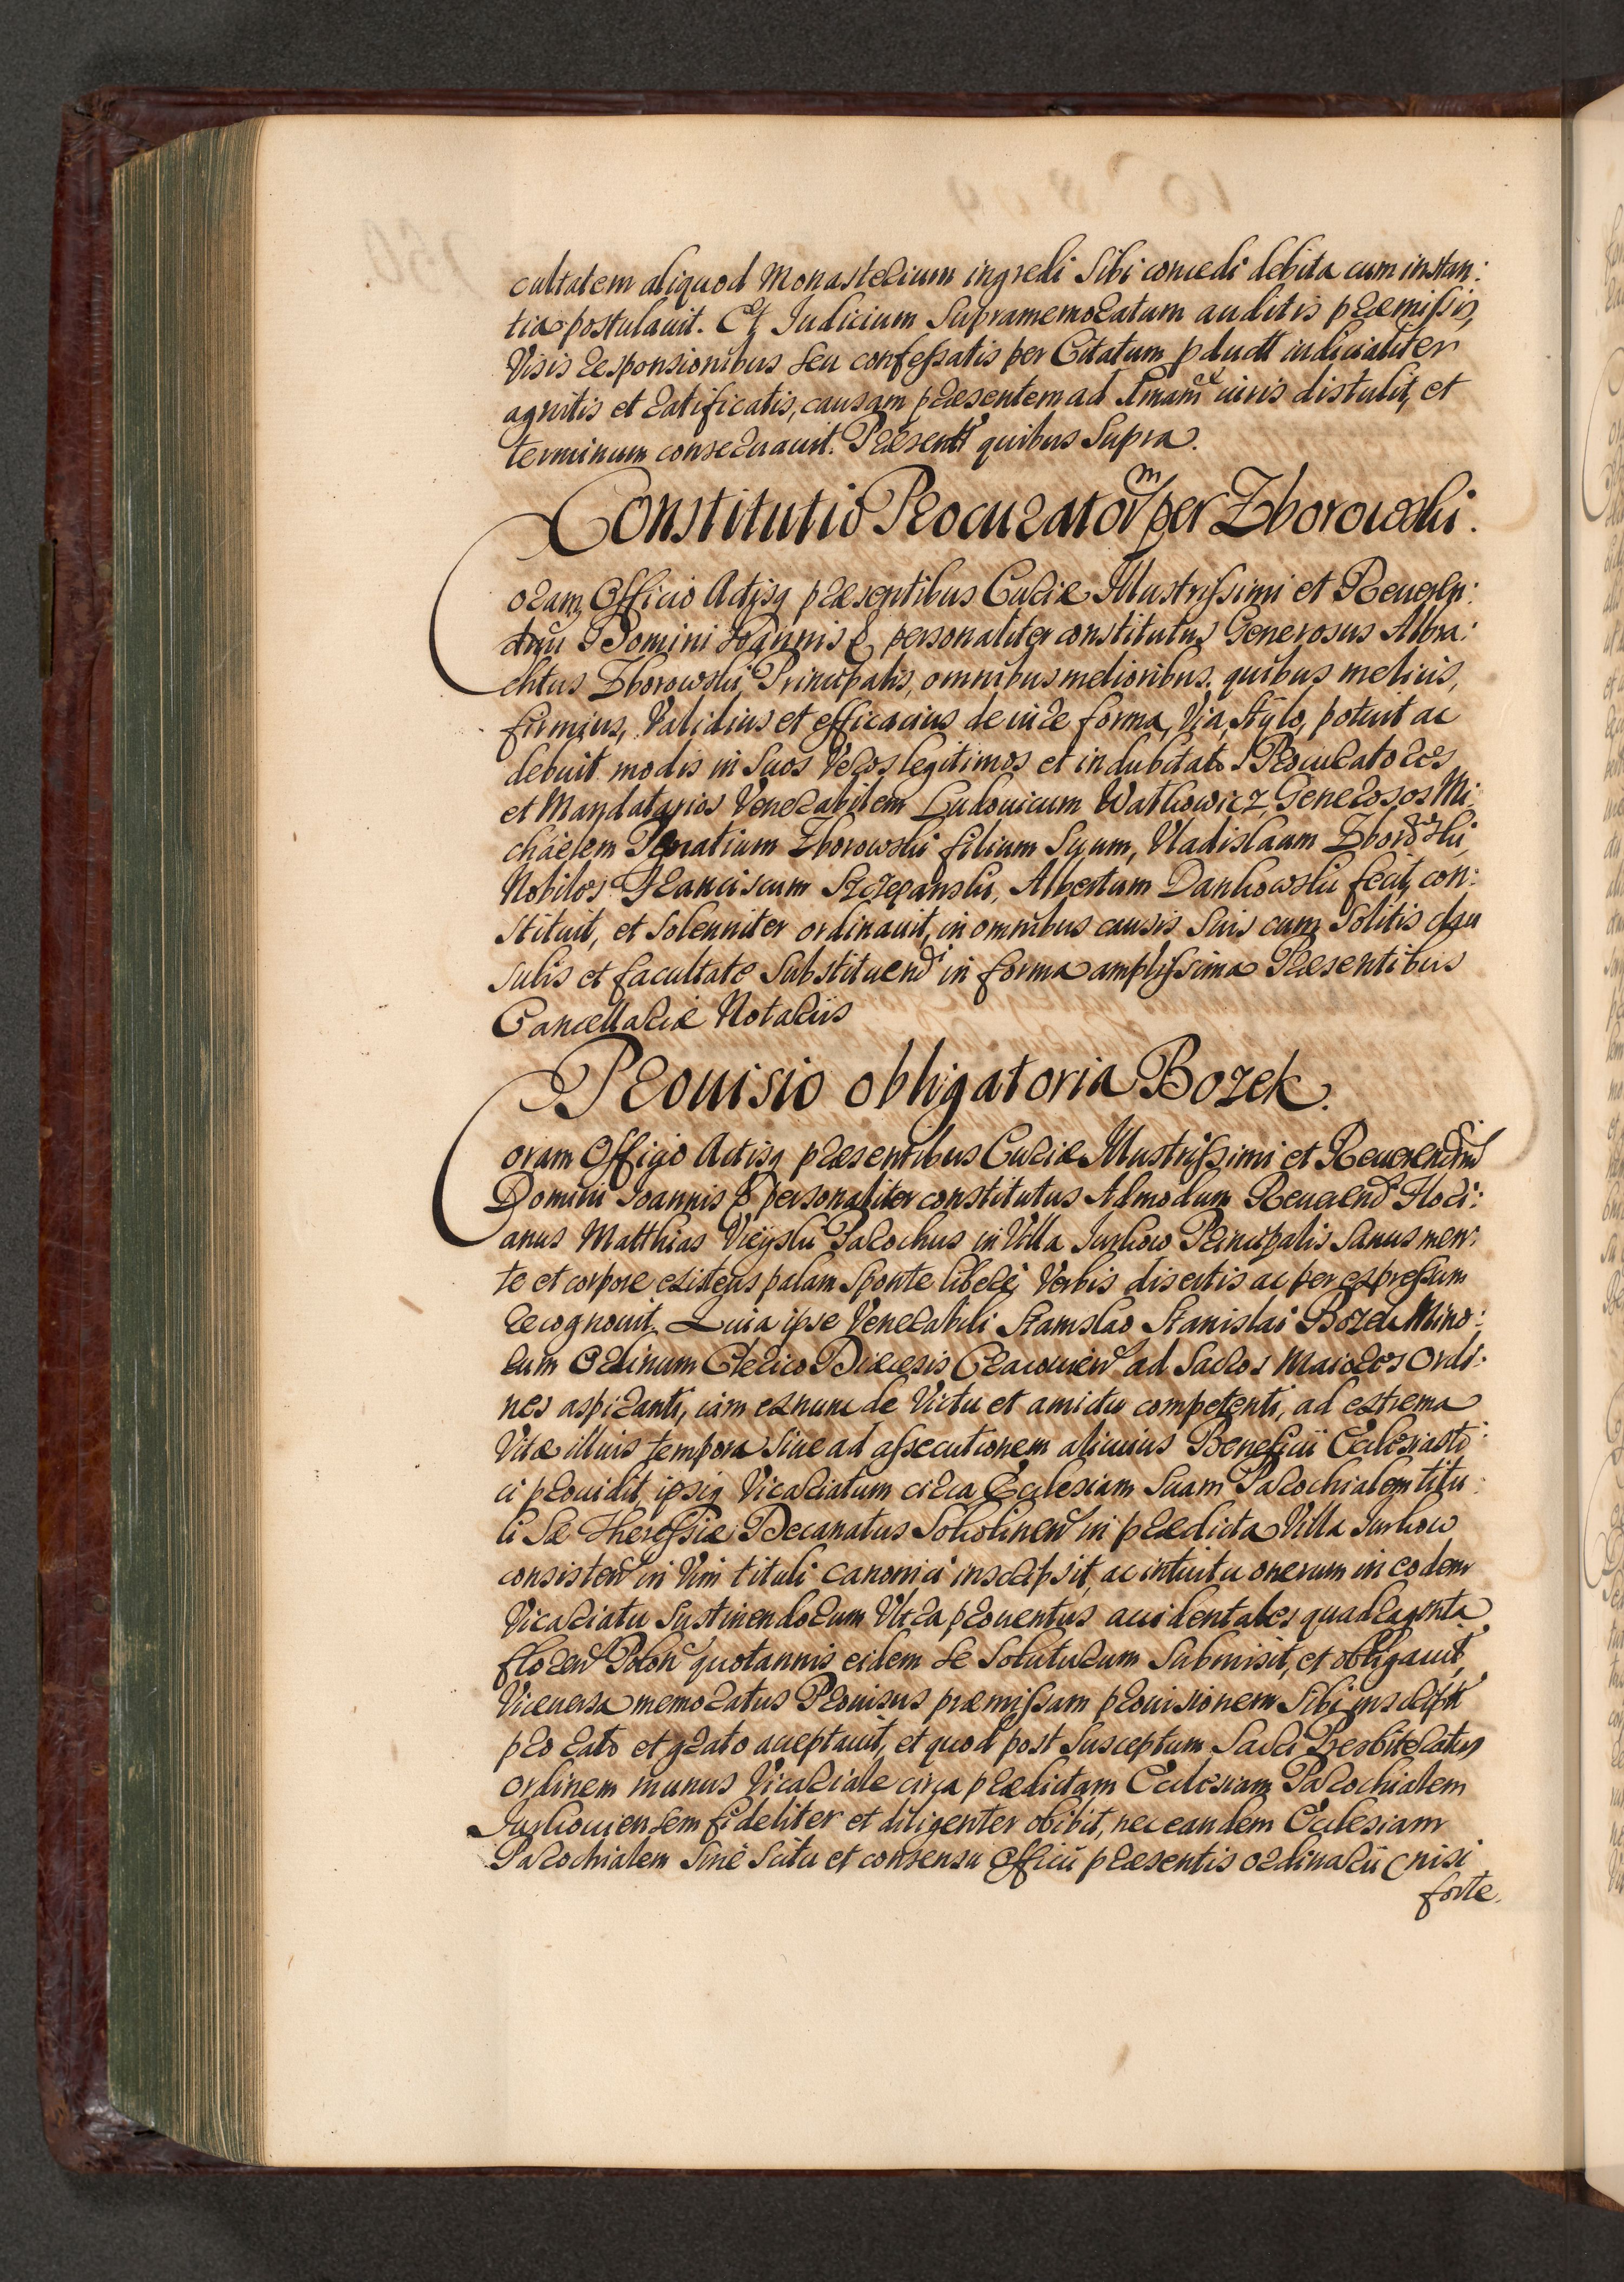 cultatem aliquod Monasterium ingredi Sibi concedi debita cum instan:
tia postulauit. Et Judicium Supramemoratum auditis præmissis,
Visis responsionibus seu confessatis per Citatum pductt iudicialiter
agnitis et ratificatis, causam præsentem ad iuris distulit, et
terminum conseruauit. Præsentt quibus Supra.
Constitutio Procuratorm per Zborowski.
Coram Officio Actisq præsentibus Curiæ Illustrissimi et Reueren:
Domini Joannis personaliter constitutus Generosus Alber:
chtus Zborowski Principalis, omnibus melioribus, quibus melius,
firmius, Validius et efficacius de iure forma, Via, Stylo, potuit ac
debuit modis in Suos Veros legitimos et indubitatos Procuratores
et Mandatarios Venerabilem Ludouicum Watkowicz, Generosos Mi:
chaelem Ignatium Zborowski filium Suum, Vladislaum Zborowski,
Nobiles Franciscum Szczepanski, Albertum Dankowski fecit, con:
stituit, et Solenniter ordinauit, in omnibus causis Suis cum Solitis clau
sulis et facultate Substituendi in forma amplissima Præsentibus
Cancellariæ Notariis
Prouisio obligatoria Bozek.
Coram Officio Actisq præsentibus Curiæ Illustrissimi et Reuerendmi
Domini Joannis personaliter constitutus Admodum Reuerend Flori:
anus Matthias Parochus in Villa Jurkow Principalis Sanus men:
te et corpore existens palam Sponte libereq Verbis disertis ac per expressum
recognouit. Quia ipse Venerabili Stanislao Stanislai Bozek Mino:
rum Ordinum Clerico Diæcesis Cracouien ad Sacros Maiores Ordi:
nes aspiranti, iam exnunc de Victu et amictu competenti, ad extrema
Vitæ illius tempora Siue ad assecutionem alicuius Beneficii Ecclesiasti
ci prouidit, ipsiq Vicariatum circa Ecclesiam Suam Parochialem titu:
li Sæ Theressiæ Decanatus in prædicta Villa Jurkow
consisten in Vim tituli canonici inscripsit, ac intuitu onerum in eodem
Vicariatu Sustinendorum Vltra prouentus accidentales quadraginta
floren Polon quotannis eidem Se Soluturum Submisit, et obligauit,
Viceuersa memoratus Prouisus præmissam prouisionem Sibi inscript
pro rato et grato acceptauit, et quod post Susceptum Sacri Presbiteratus
ordinem munus Vicariale circa prædictam Ecclesiam Parochialem
Jurkouiensem fideliter et diligenter obibit, nec eandem Ecclesiam
Parochialem Sine Scitu et consensu Officii præsentis ordinarii (nisi
forte